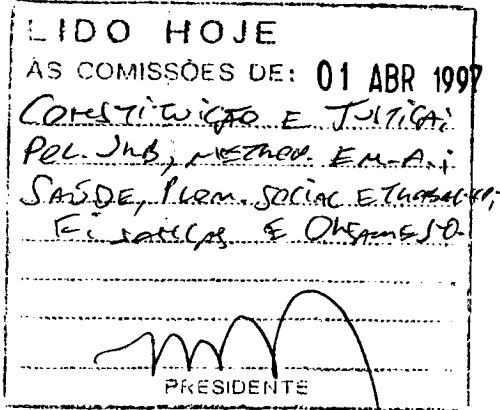 LIDO HOJE
AS COMISSÕES DE: 01 ABR 1997
CONSTITUIÇÃO E JUSTIÇA;
POL. URB, METROP. E M. A.;
SAÚDE, PROM. SOCIAL E TRABALHO;
FINANÇAS E ORÇAMENTO
PRESIDENTE